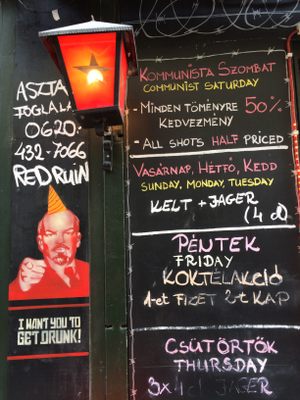 ASZTAL
FOGLALÁS
0620
432-7066
RED RUIN
I WANT YOU TO
GET DRUNK!
KOMMUNISTA SZOMBAT
COMMUNIST SATURDAY
- MINDEN TÖMÉNYRE 50%
KEDVEZMÉNY
- ALL SHOTS HALF PRICED
VASÁRNAP, HÉTFŐ, KEDD
SUNDAY, MONDAY, TUESDAY
KELT + JAGER
PÉNTEK
FRIDAY
KOKTÉLAKCIÓ
1-et FIZET 2-t KAP
CSÜTÖRTÖK
THURSDAY
JAGER